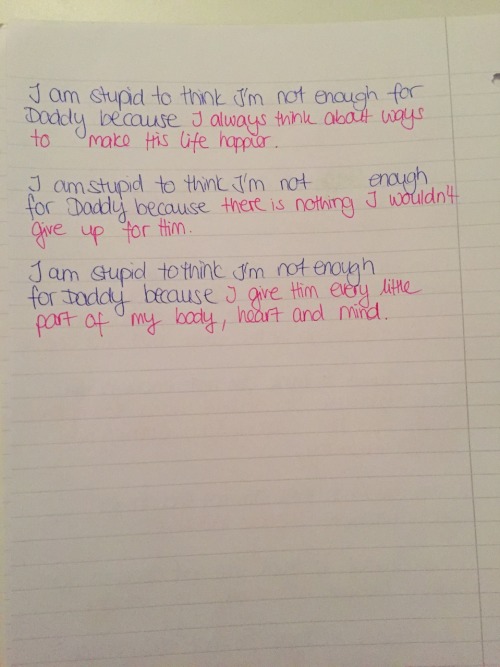 I am stupid to think I'm not enough for
Daddy because I always think about ways
to make His life happier.
I am stupid to think I'm not enough
for Daddy because there is nothing I wouldn't
give up for Him.
I am stupid to think I'm not enough
for Daddy because I give Him every little
part of my body, heart and mind.